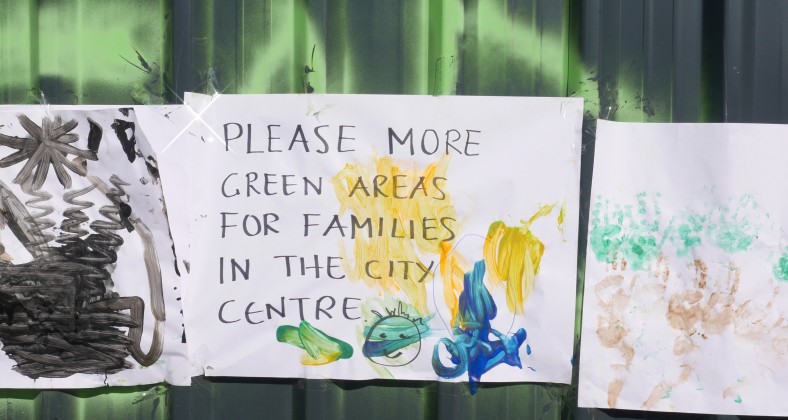 PLEASE MORE
GREEN AREAS
FOR FAMILIES
IN THE CITY
CENTRE